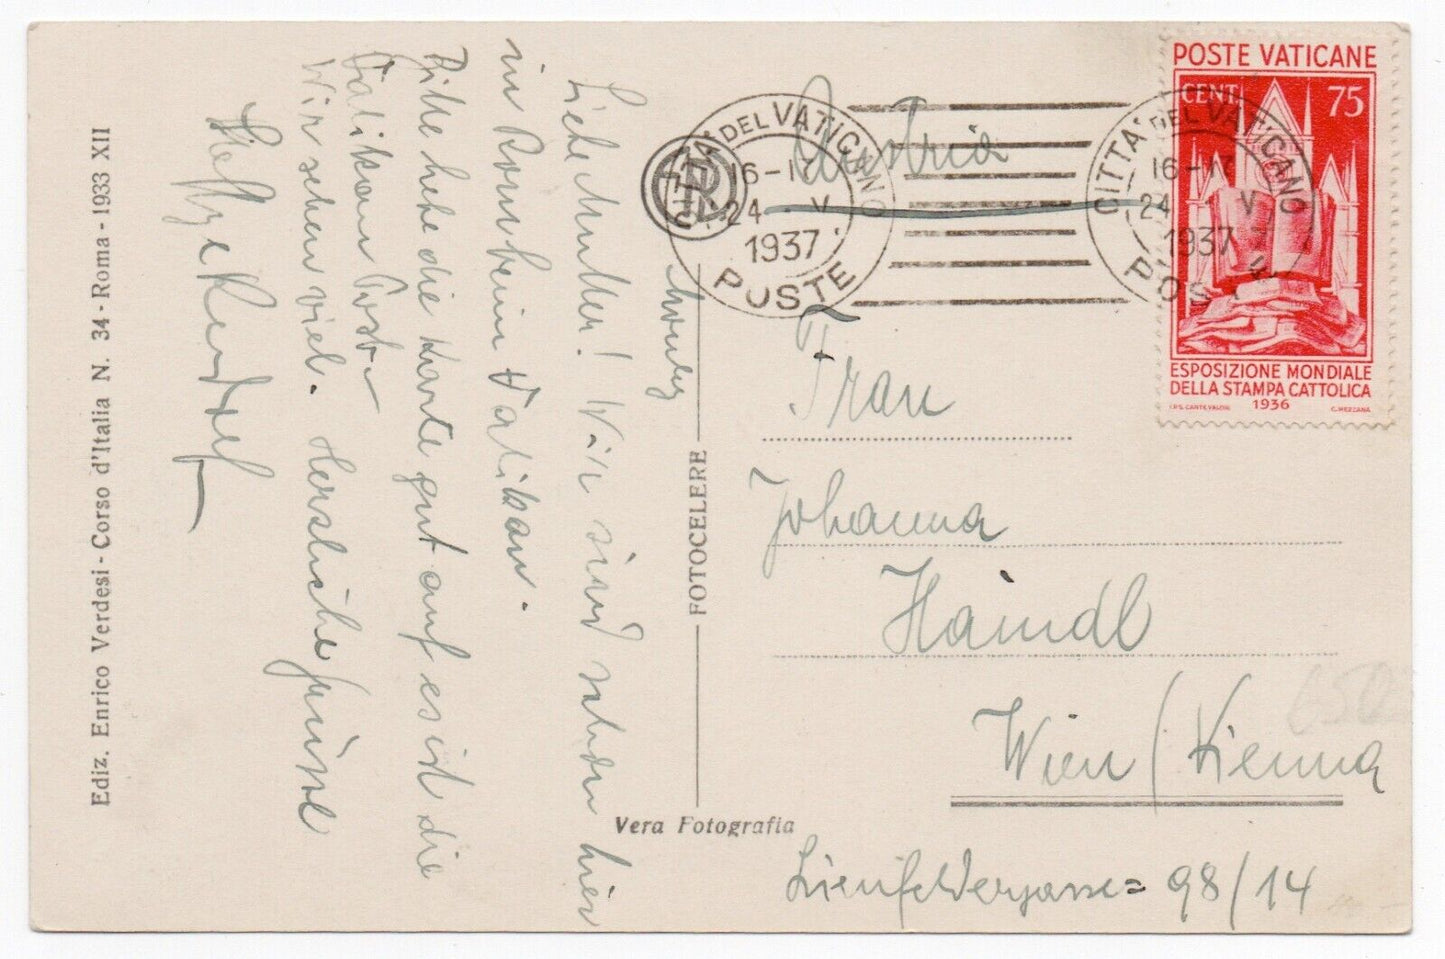 Liebe Mutter! Wir sind schon hier
in Rom beim Vatikan.
Bitte hebe die Karte gut auf es ist die
Vatikan Post
Wir sehen viel. Herzliche Grüsse
Ediz. Enrico Verdesi - Corso d'Italia N. 34 - Roma - 1933 XII
FOTOCELERE
Vera Fotografia
CITTA' DEL VATICANO
16-17
24 V
1937
POSTE
CITTA' DEL VATICANO
16-17
24 V
1937
POSTE
POSTE VATICANE
CENT. 75
ESPOSIZIONE MONDIALE
DELLA STAMPA CATTOLICA
1936
I.P.S. CARTE VALORI C. MEZZANA
Austria
Frau
Johanna
Haindl
Wien / Vienna
98/14
650